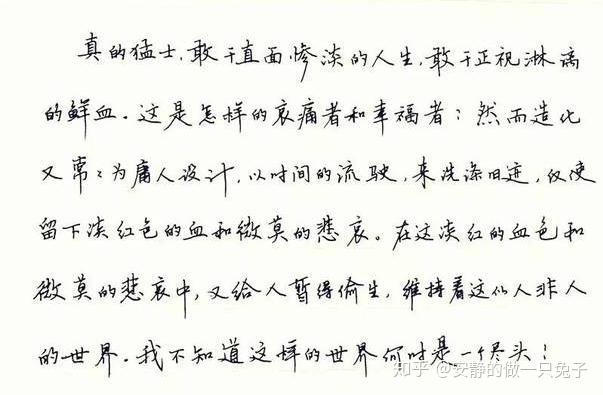 真的猛士,敢于直面惨淡的人生,敢于正视淋漓
的鲜血.这是怎样的哀痛者和幸福者:然而造化
又常々为庸人设计,以时间的流驶,来洗涤旧迹,仅使
留下淡红色的血和微莫的悲哀。在这淡红的血色和
微莫的悲哀中,又给人暂得偷生,维持着这似人非人
的世界.我不知道这样的世界何时是一个尽头!
知乎 @安静的做一只兔子